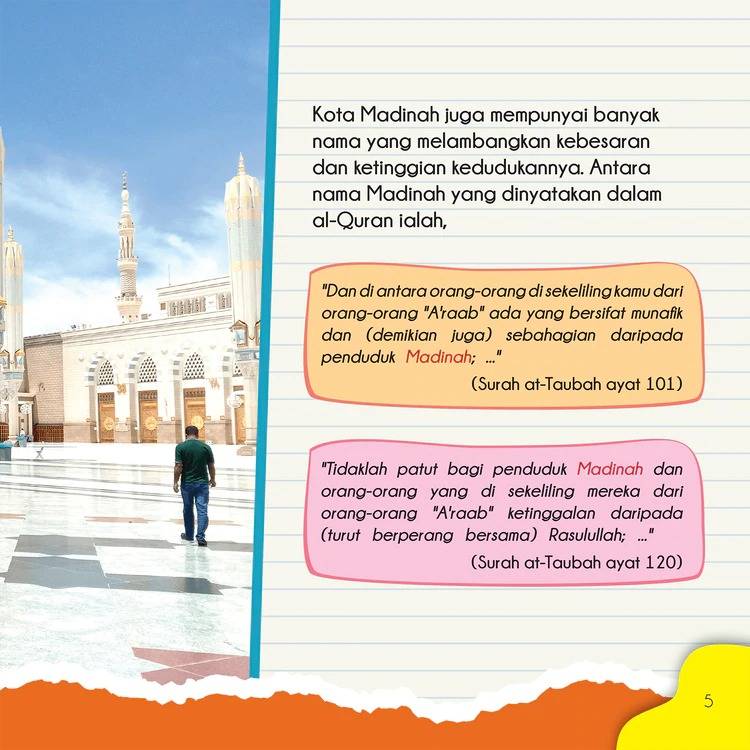 Kota Madinah juga mempunyai banyak
nama yang melambangkan kebesaran
dan ketinggian kedudukannya. Antara
nama Madinah yang dinyatakan dalam
al-Quran ialah,
"Dan di antara orang-orang di sekeliling kamu dari
orang-orang "A'raab" ada yang bersifat munafik
dan (demikian juga) sebahagian daripada
penduduk Madinah; ..."
(Surah at-Taubah ayat 101)
"Tidaklah patut bagi penduduk Madinah dan
orang-orang yang di sekeliling mereka dari
orang-orang "A'raab" ketinggalan daripada
(turut berperang bersama) Rasulullah; ..."
(Surah at-Taubah ayat 120)
5